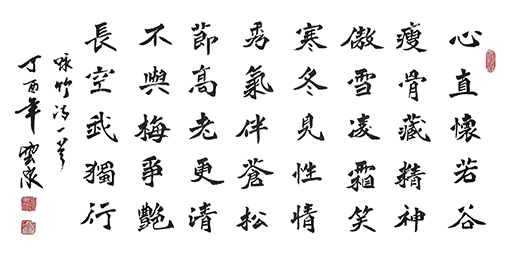 心直懷若谷
瘦骨藏精神
傲雪凌霜笑
寒冬見性情
秀氣伴蒼松
節高老更清
不與梅爭艷
長空我獨行
咏竹詩一首
丁酉年